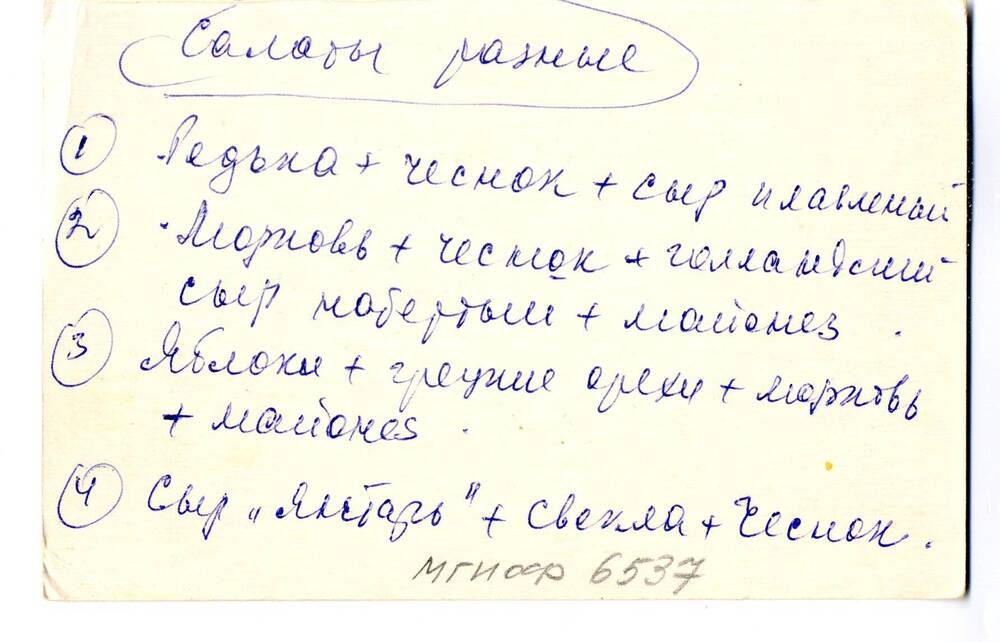 Салаты разные
1 Редька + чеснок + сыр плавленый
2 Морковь + чеснок + голландский
сыр набертый + майонез.
3 Яблоки + грецкие орехи + морковь
+ майонез.
4 Сыр „Янтарь" + свекла + Чеснок.
МГИ оф 6537